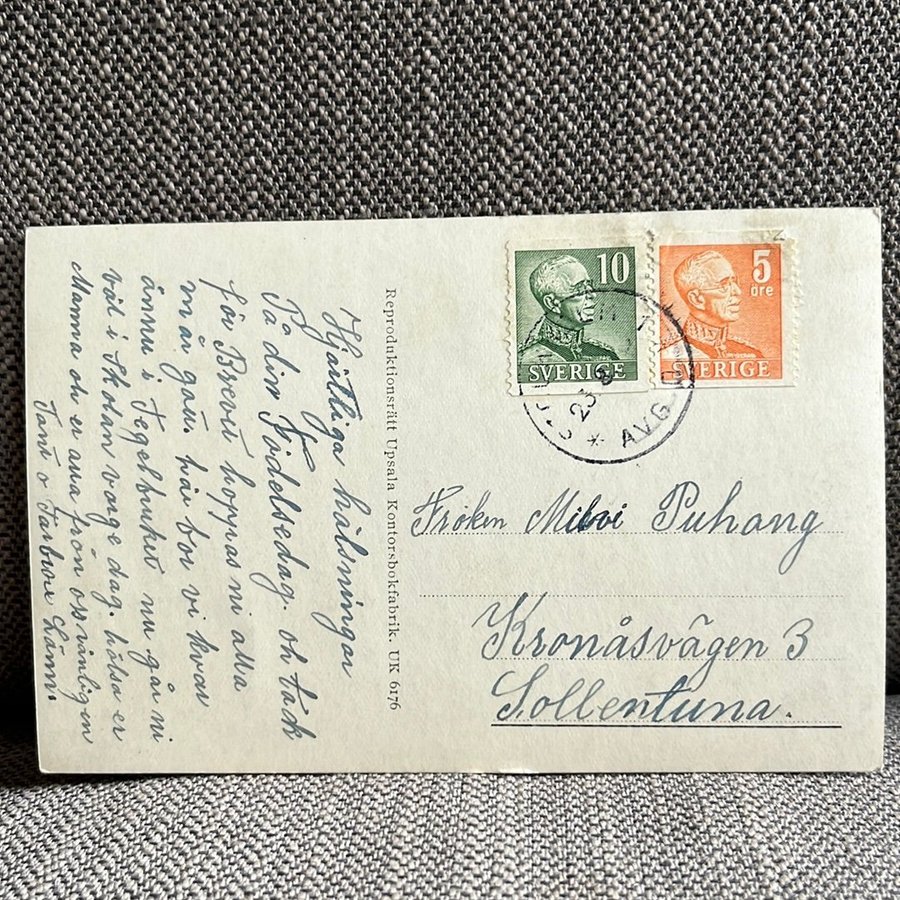 Hjärtliga hälsningar
På din Födelsedag. oh tack
för Brevet hoppas ni alla
mår gått. här bor vi kvar
ännu i Tegelbruket nu går ni
väd i Skolan varge dag. hälsa er
Mamma oh er ana från oss vänligen
Tant o Farbror
Reproduktionsrätt Upsala Kontorsbokfabrik. UK 6176
10
SVERIGE
5
öre
SVERIGE
AVG
Fröken Milvi Puhang
Kronåsvägen 3
Sollentuna.